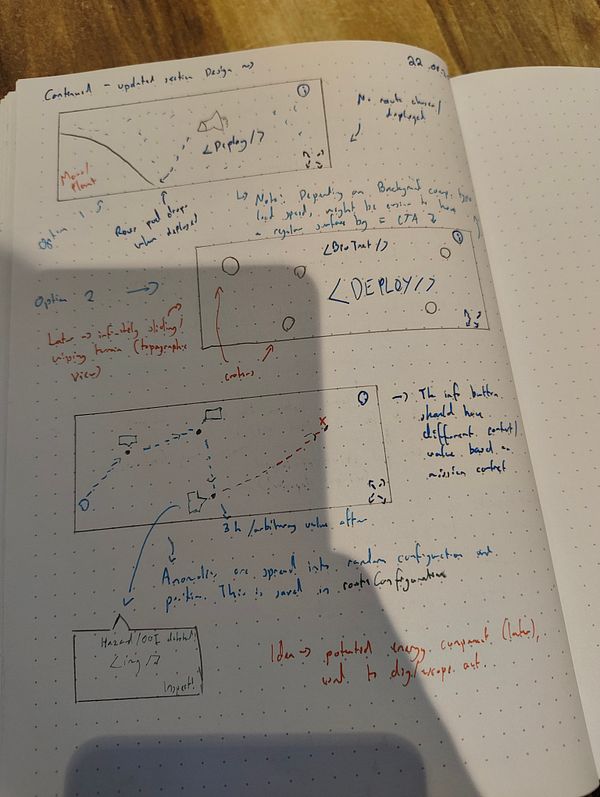 Continued - updated section Design ~>
22
No route chosen/
displayed
<Deploy/>
Moon/
Planet
Option 1
Rover pod drop
value displayed
↳ Note: Depending on Background comp. type
load speed, might be easier to have
a regular surface bg = CTA
<BioTract/>
<DEPLOY/>
Option 2 →
Later → infinitely sliding/
terrain (topographic
view)
craters
→ The info button
should have
different context/
value based on
mission context
x
3h/arbitrary value after
Anomalies are spread into random configuration and
position. This is saved in routeConfiguration
Hazard/OOI detected
<img />
Inspect!
Idea → potential energy component (later),
want to dig/scope out..